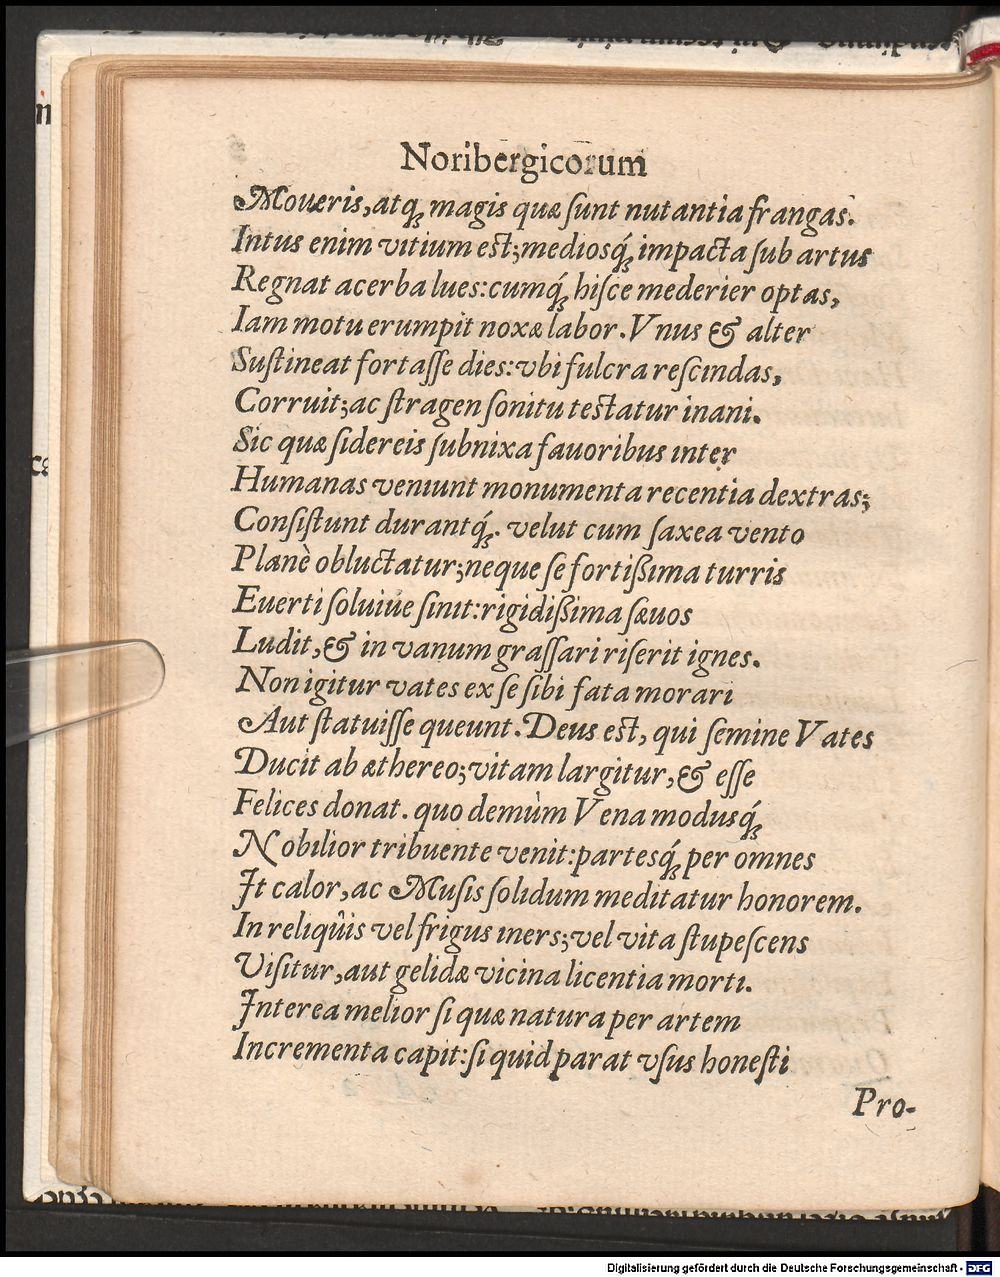 Noribergicorum
Moueris, atq; magis quæ ſunt nutantia frangas.
Intus enim vitium est; mediosq́; impacta ſub artus
Regnat acerba lues: cumq́; hiſce mederier optas,
Iam motu erumpit noxæ labor. Vnus & alter
Suſtineat fortaſſe dies: vbi fulcra reſcindas,
Corruit; ac ſtragen ſonitu testatur inani.
Sic quæ ſidereis ſubnixa fauoribus inter
Humanas veniunt monumenta recentia dextras;
Conſiſtunt durantq́;. velut cum ſaxea vento
Planè obluctatur; neque ſe fortißima turris
Euerti ſoluiue ſinit: rigidißima ſæuos
Ludit, & in vanum graſſari riſerit ignes.
Non igitur vates ex ſe ſibi fata morari
Aut ſtatuiſſe queunt. Deus est, qui ſemine Vates
Ducit ab æthereo; vitam largitur, & eſſe
Felices donat. quo demùm Vena modusq́;
Nobilior tribuente venit: partesq́; per omnes
It calor, ac Muſis ſolidum meditatur honorem.
In reliqûis vel frigus iners; vel vita ſtupeſcens
Viſitur, aut gelidæ vicina licentia morti.
Interea melior ſi quæ natura per artem
Incrementa capit: ſi quid parat vſus honeſti
Pro-
Digitalisierung gefördert durch die Deutsche Forschungsgemeinschaft - DFG